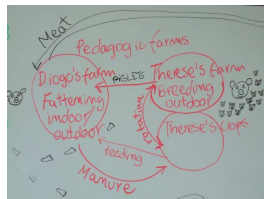 Meat
Pedagogic farms
Diogo's farm
Fattening
indoor/
outdoor
PIGLES
Therese's farm
Breeding
outdoor
rotation
Therese's crops
feeding
Manure